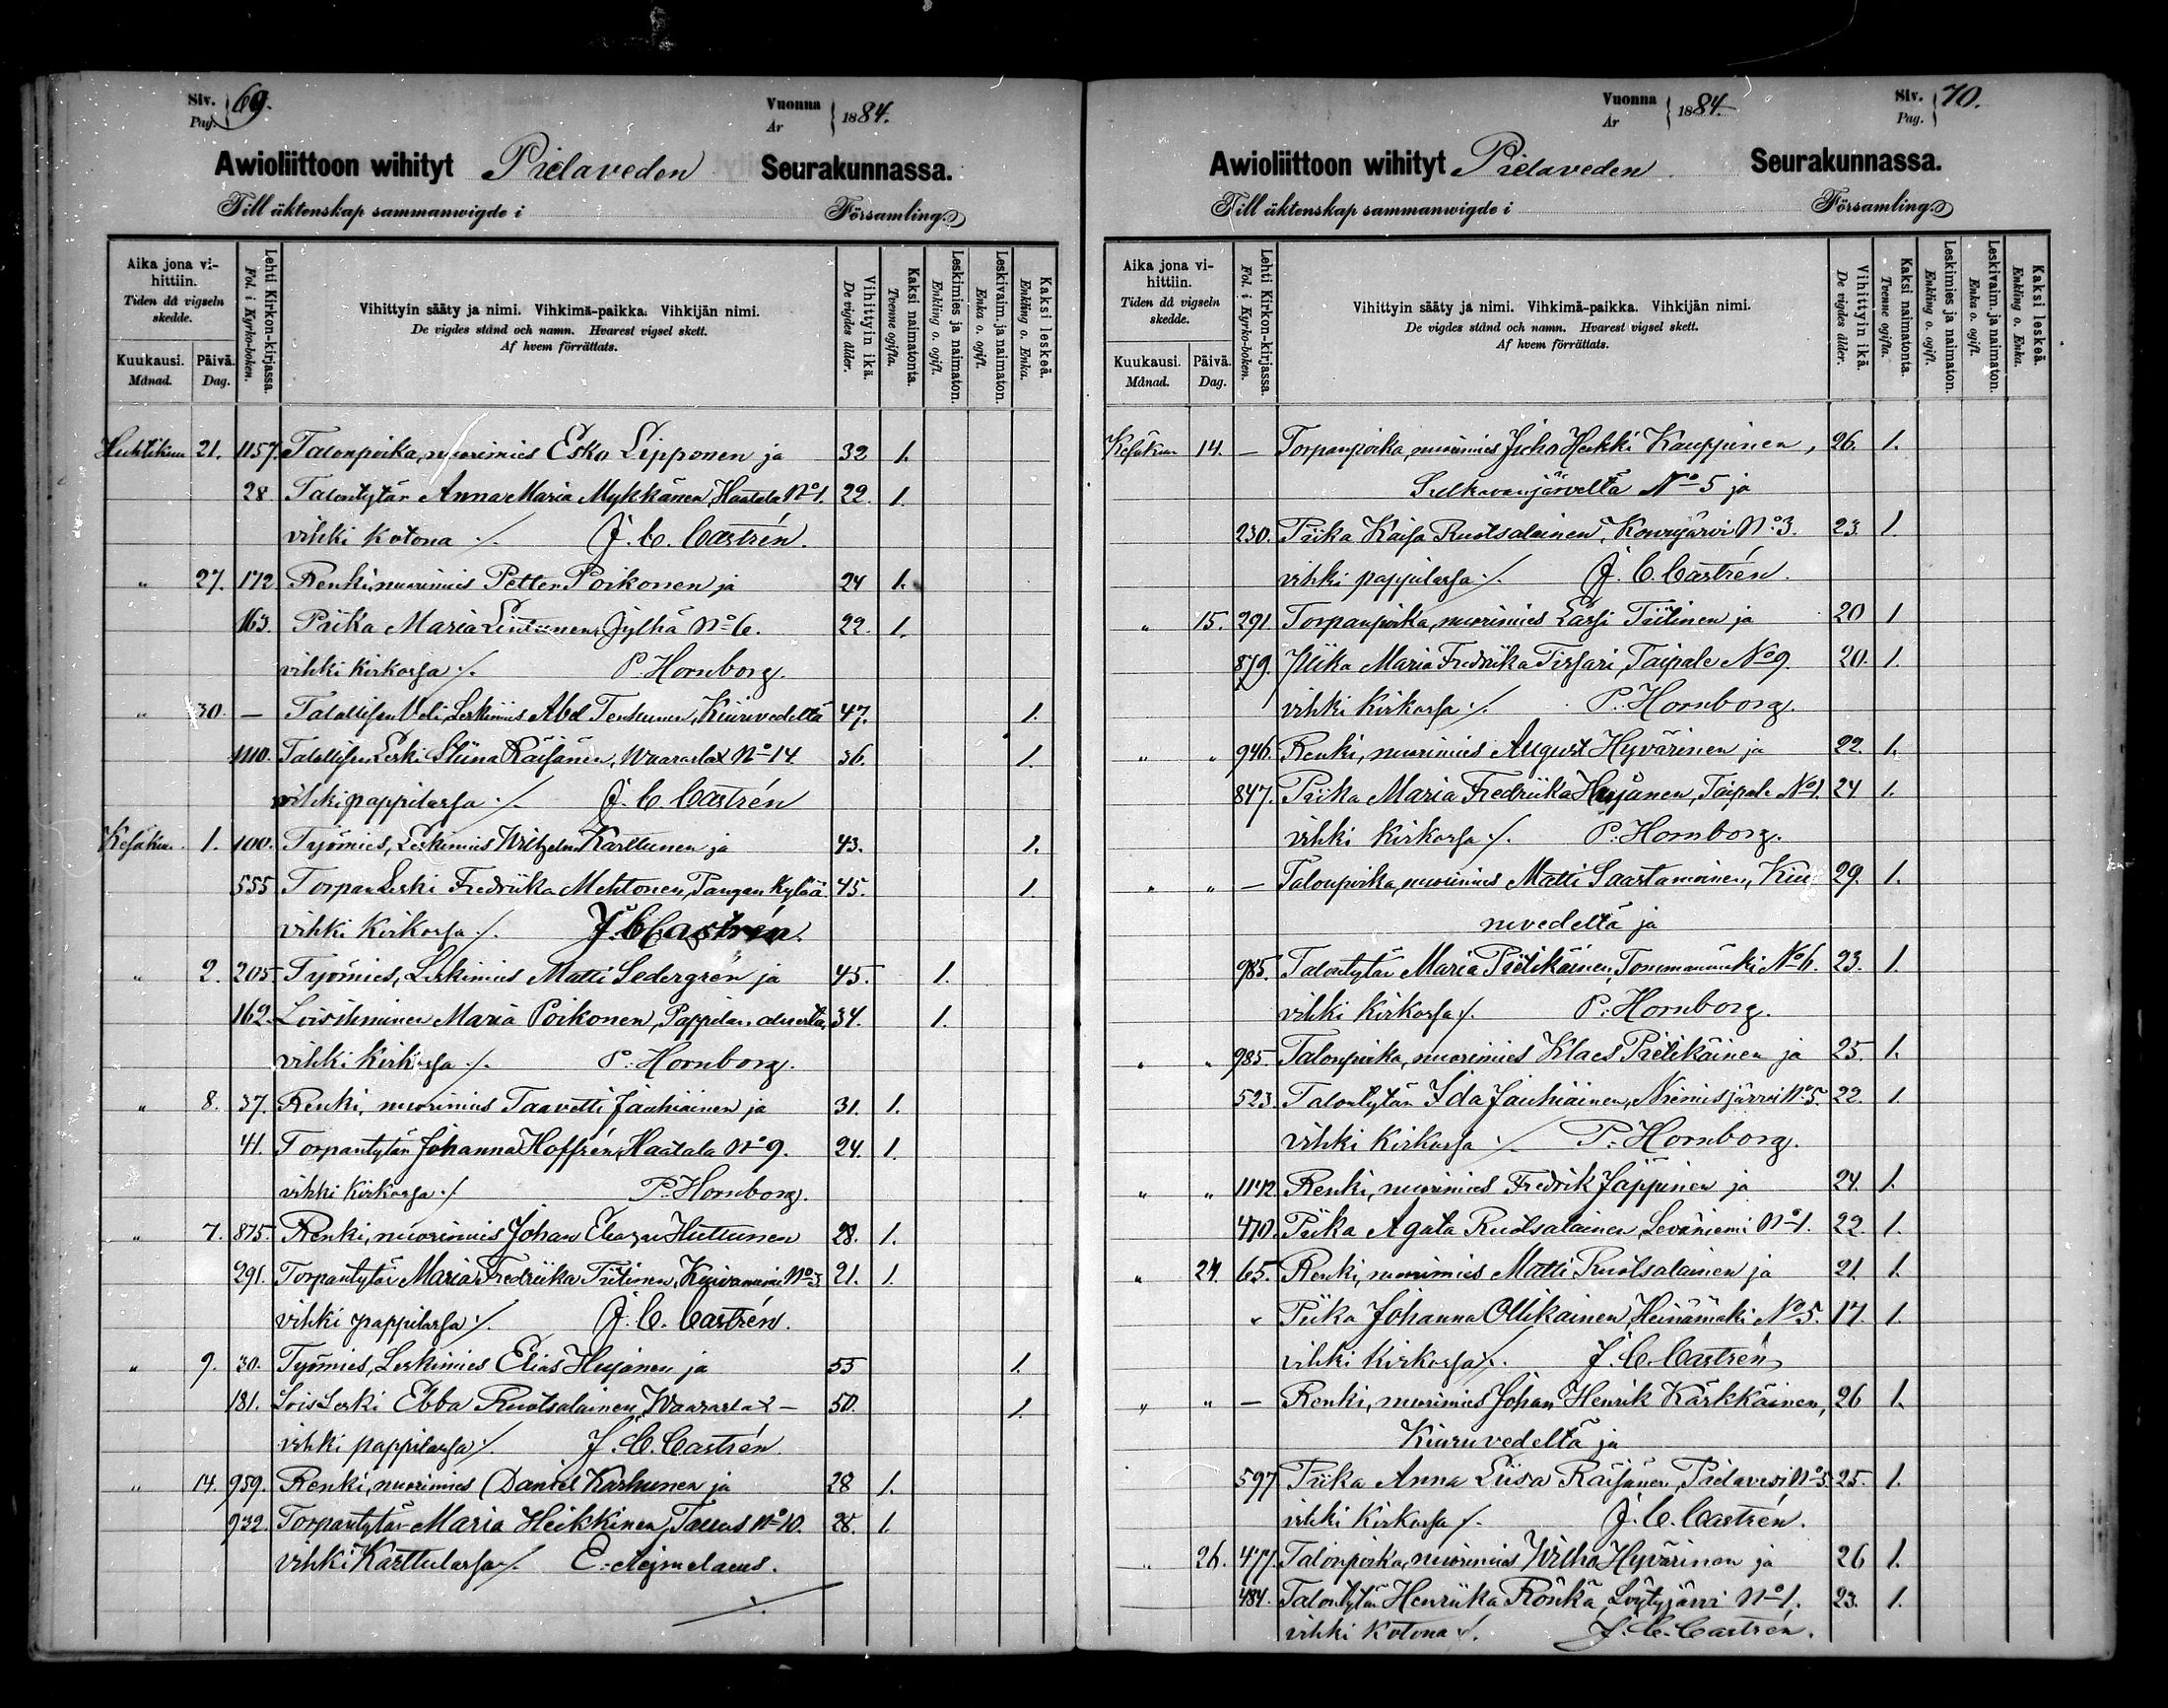 Siv. Pag. 69.
Vuonna År 1884.
Awioliittoon wihityt Pielaveden Seurakunnassa.
Till äktenskap sammanwigde i Församling.
Aika jona vihittiin. Tiden då vigseln skedde.
Kuukausi. Månad.
Päivä. Dag.
Lehti Kirkon-kirjassa. Fol. i Kyrko-boken.
Vihittyin sääty ja nimi. Vihkimä-paikka. Vihkijän nimi.
De vigdes stånd och namn. Hvarest vigsel skett.
Af hvem förrättats.
Vihittyin ikä. De vigdes ålder.
Kaksi naimatonta. Tvenne ogifta.
Leskimies ja naimaton. Enkling o. ogift.
Leskivaim. ja naimaton. Enka o. ogift.
Kaksi leskeä. Enkling o. Enka.
Huhtikuu 21. 1157. Talonpoika, nuorimies Esko Lipponen ja 32 1.
28. Talontytär Anna Maria Mykkänen, Haatala No 1. 22. 1.
vihki kotona ./. J. C. Castrén.
" 27. 172 Renki, nuorimies Petter Poikonen ja 24 1.
163. Piika Maria Lintunen, Jylhä No 6. 22. 1.
vihki kirkossa ./. P. Hornborg.
" 30. — Talollisen Veli, Leskimies Abel Tenhunen, Kiuruvedeltä 47. 1.
1110. Talollisen Leski Stiina Räisänen, Waaraslax No 14. 36. 1.
vihki pappilassa ./. J. C. Castrén
Kesäkuu 1. 100. Työmies, Leskimies Wilhelm Karttunen ja 43. 1.
555 Torpan Leski Fredriika Mehtonen, Pangan Kylää 45. 1.
vihki kirkossa ./. J. C. Castrén.
" 2. 205 Työmies, Leskimies Matti Sedergrén ja 45. 1.
162. Loisihminen Maria Poikonen, Pappilan alueelta, 34. 1.
vihki kirkossa ./. P. Hornborg.
" 8. 37. Renki, nuorimies Taavetti Jauhiainen ja 31. 1.
41. Torpantytär Johanna Hoffrén, Haatala No 9. 24. 1.
vihki kirkossa ./. P. Hornborg.
" 7. 875. Renki, nuorimies Johan Huttunen 28. 1.
291. Torpantytär Maria Fredriika Tiitinen, Kuivaniemi No 3 21. 1.
vihki pappilassa ./. J. C. Castrén.
" 9. 30. Työmies, Leskimies Elias Hujanen ja 55 1.
181. Lois Leski Ebba Ruotsalainen, Waaraslax – 50. 1.
vihki pappilassa ./. J. C. Castrén
" 14. 959. Renki, nuorimies Daniel Karhunen ja 28 1.
932. Torpantytär Maria Heikkinen, Tallus No 10. 28. 1.
vihki Karttulassa ./. E. Aejmelaeus.
Vuonna År 1884.
Siv. Pag. 70.
Awioliittoon wihityt Pielaveden Seurakunnassa.
Till äktenskap sammanwigde i Församling.
Aika jona vihittiin. Tiden då vigseln skedde.
Kuukausi. Månad.
Päivä. Dag.
Lehti Kirkon-kirjassa. Fol. i Kyrko-boken.
Vihittyin sääty ja nimi. Vihkimä-paikka. Vihkijän nimi.
De vigdes stånd och namn. Hvarest vigsel skett.
Af hvem förrättats.
Vihittyin ikä. De vigdes ålder.
Kaksi naimatonta. Tvenne ogifta.
Leskimies ja naimaton. Enkling o. ogift.
Leskivaim. ja naimaton. Enka o. ogift.
Kaksi leskeä. Enkling o. Enka.
Kesäkuu 14. — Torpanpoika, nuorimies Juho Heikki Kauppinen, 26. 1.
Sulkavanjärveltä No 5 ja
230. Piika Kaisa Ruotsalainen, Koivujärvi No 3. 23. 1.
vihki pappilassa ./. J. C. Castrén.
" 15. 291 Torpanpoika, nuorimies Lassi Tiitinen ja 20 1
879. Piika Maria Fredriika Tissari, Taipale No 9. 20. 1.
vihki kirkossa ./. P. Hornborg.
" " 946. Renki, nuorimies August Hyvärinen ja 22. 1.
847. Piika Maria Fredriika Hujanen, Taipale No 1. 24 1.
vihki kirkossa ./. P. Hornborg.
" " — Talonpoika, nuorimies Matti Saastamoinen, Kiu 29. 1.
ruvedeltä ja
985. Talontytär Maria Pietikäinen, Tommonmäki No 6. 23. 1.
vihki kirkossa ./. P. Hornborg.
" " 985. Talonpoika, nuorimies Klaes Pietikäinen ja 25. 1.
523. Talontytär Ida Jauhiainen, Niemisjärvi No 5. 22. 1
vihki kirkossa ./. P. Hornborg.
" " 1142. Renki, nuorimies Fredrik Jäppinen ja 24. 1.
470. Piika Agata Ruotsalainen, Leväniemi No 1. 22. 1.
" 24. 65. Renki, nuorimies Matti Ruotsalainen ja 21. 1.
" Piika Johanna Ollikainen, Heinämäki No 5. 17. 1.
vihki kirkossa ./. J. C. Castrén
" " — Renki, nuorimies Johan Henrik Kärkkäinen, 26 1.
Kiuruvedeltä ja
597 Piika Anna Liisa Räisänen, Pielavesi No 3. 25. 1.
vihki kirkossa ./. J. C. Castrén.
" 26. 477. Talonpoika, nuorimies Wilho Hyvärinen ja 26 1.
484. Talontytär Henriika Rönkä, Löytyjärvi No 1. 23. 1.
vihki kotona ./. J. C. Castrén.